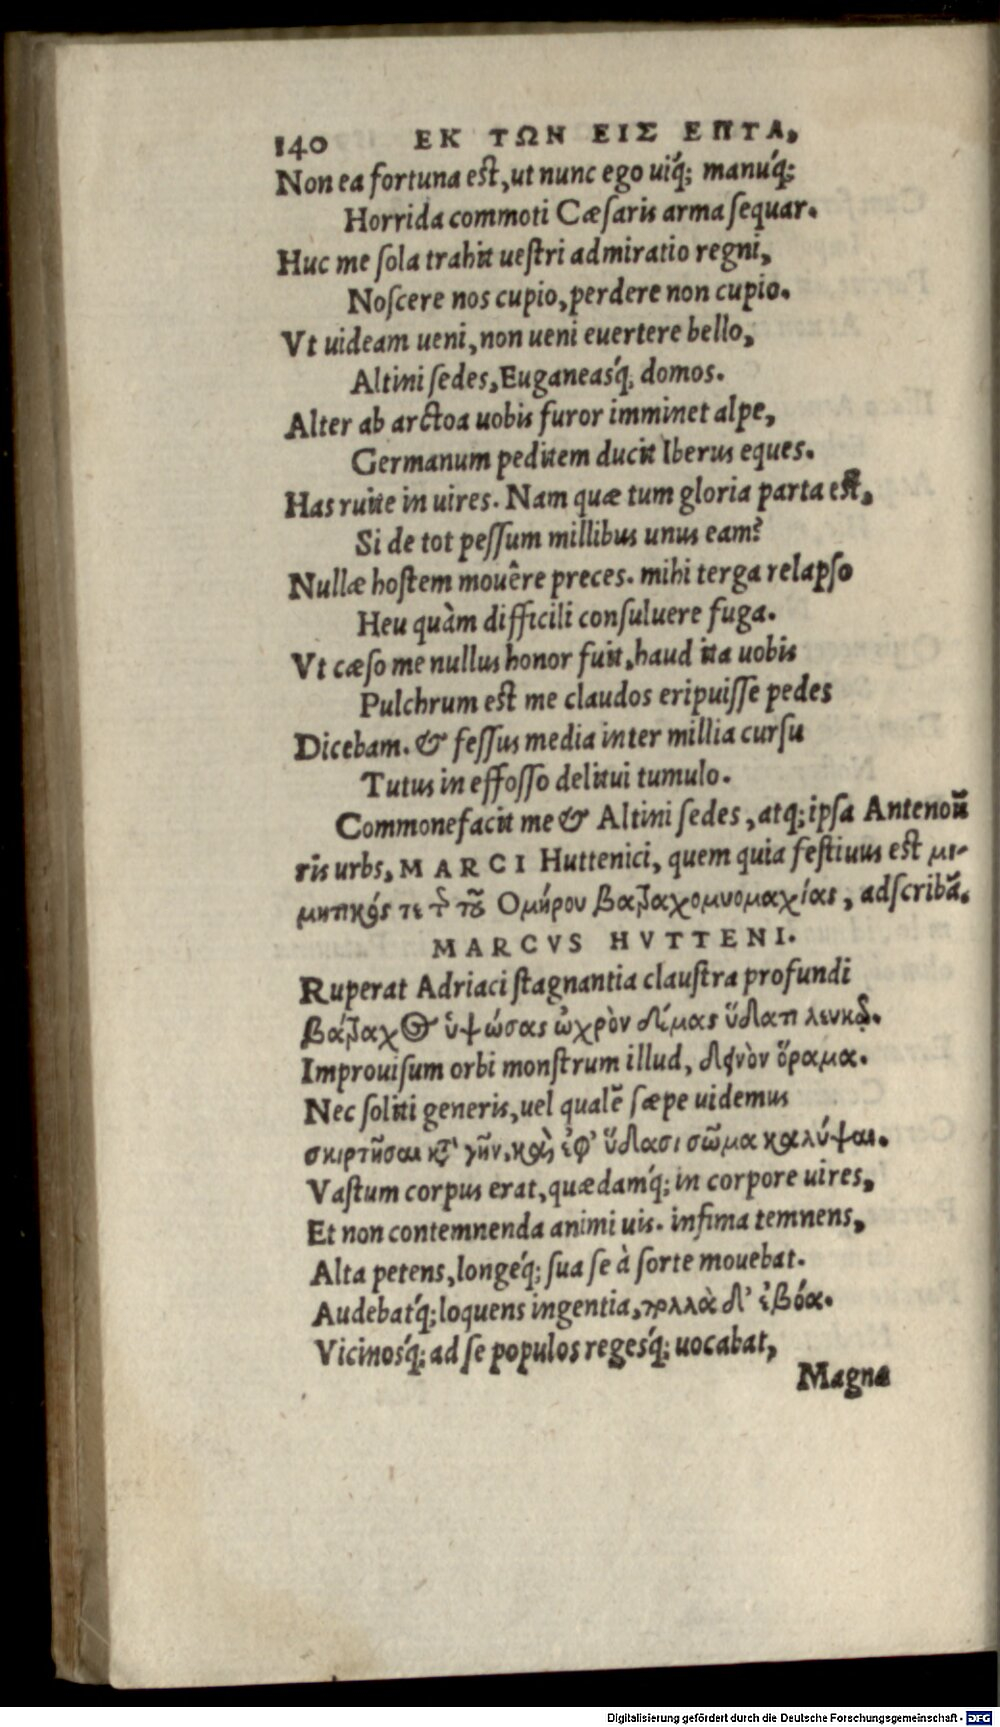 140 ΕΚ ΤΩΝ ΕΙΣ ΕΠΤΑ,
Non ea fortuna est, ut nunc ego uiq́; manuq́;
Horrida commoti Cæsaris arma sequar.
Huc me sola trahit uestri admiratio regni,
Noscere nos cupio, perdere non cupio.
Vt uideam ueni, non ueni euertere bello,
Altini sedes, Euganeasq́; domos.
Alter ab arctoa uobis furor imminet alpe,
Germanum peditem ducit Iberus eques.
Has ruite in uires. Nam quæ tum gloria parta est,
Si de tot pessum millibus unus eam?
Nullæ hostem mouêre preces. mihi terga relapso
Heu quàm difficili consuluere fuga.
Vt cæso me nullus honor fuit, haud ita uobis
Pulchrum est me claudos eripuisse pedes
Dicebam. & fessus media inter millia cursu
Tutus in effosso delitui tumulo.
Commonefacit me & Altini sedes, atq; ipsa Anteno
ris urbs, MARCI Huttenici, quem quia festiuus est μι-
μητικός τε τ͂ τοῦ Ομήρου βατραχομυομαχίας, adscribã.
MARCVS HVTTENI.
Ruperat Adriaci stagnantia claustra profundi
βάτραχος ὑψώσας ὠχρὸν δέμας ὕδατι λευκῷ.
Improuisum orbi monstrum illud, δεινὸν ὅραμα.
Nec soliti generis, uel qualẽ sæpe uidemus
σκιρτῆσαι κατὰ γῆν, καὶ ἐφ' ὕδασι σῶμα καλύψαι.
Vastum corpus erat, quædamq́; in corpore uires,
Et non contemnenda animi uis. infima temnens,
Alta petens, longeq́; sua se à sorte mouebat.
Audebatq́; loquens ingentia, πολλὰ δ' ἐβόα.
Vicinosq́; ad se populos regesq́; uocabat,
Magna
Digitalisierung gefördert durch die Deutsche Forschungsgemeinschaft - DFG